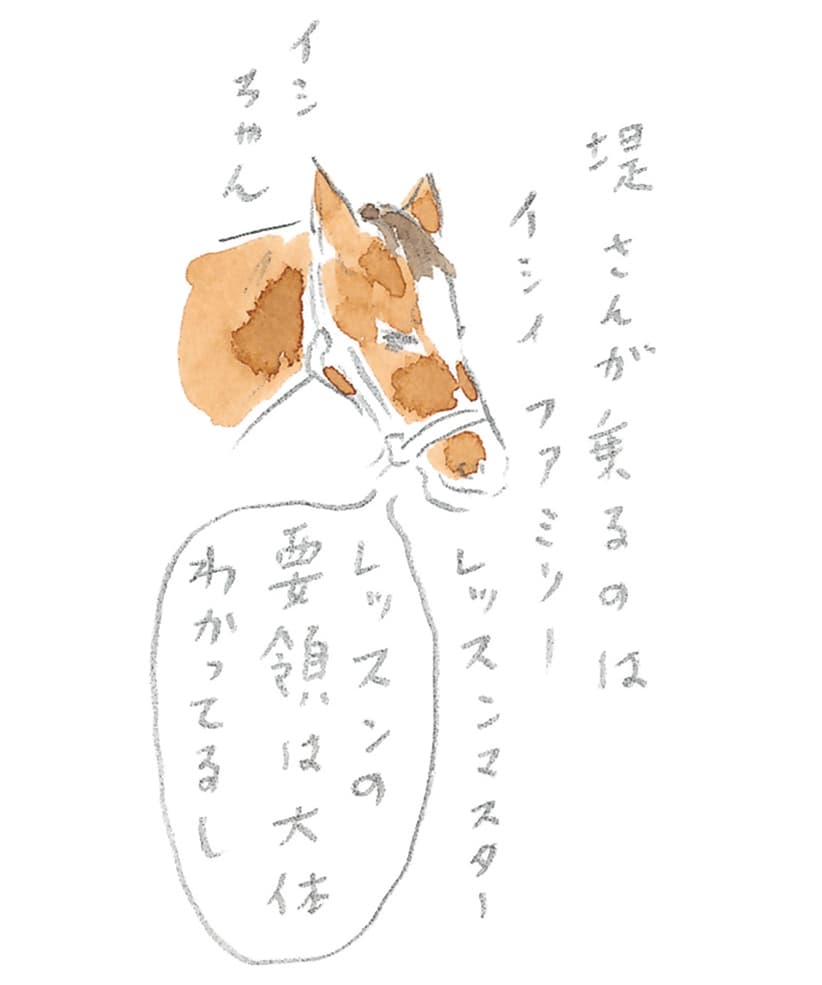 堤さんが乗るのは
イシイファミリー
レッスンマスター
イシ
ちゃん
レッスンの
要領は大体
わかってるし